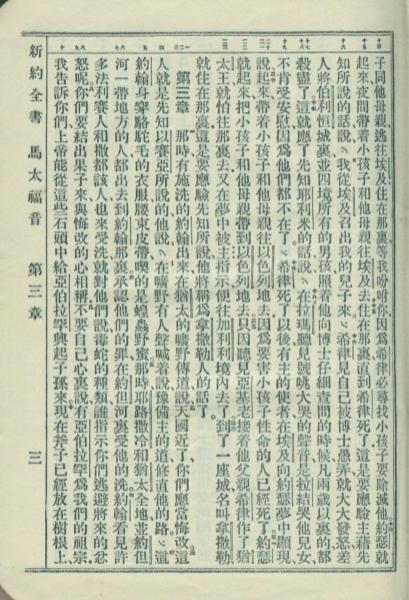 子同他母親逃往埃及住在那裏等我吩咐你因爲希律必尋找小孩子要除滅他約瑟就
起來夜間帶着小孩子和他母親往埃及去住在那裏直到希律死了這是要應驗主藉先
知所說的話說我從埃及召出我的兒子來希律見自己被博士愚弄就大大發怒差
人將伯利恒城裏並四境所有的男孩照着他向博士仔細查問的時候凡兩歲以裏的都
殺盡了這就應了先知耶利米的話說在拉瑪聽見號咷大哭的聲音是拉結哭他兒女
不肯受安慰因爲他們都不在了希律死了以後有主的使者在埃及向約瑟夢中顯現
說起來帶着小孩子和他母親往以色列地去因爲要害小孩子性命的人已經死了約瑟
就起來把小孩子和他母親帶到以色列地去只因聽見亞基老接着他父親希律作了猶
太王就怕往那裏去又在夢中被主指示便往加利利境內去了到了一座城名叫拿撒勒
就住在那裏這是要應驗先知所說他將稱爲拿撒勒人的話了
第三章 那時有施洗的約翰出來在猶太的曠野傳道說天國近了你們應當悔改這
人就是先知以賽亞所說的他說在曠野有人聲喊着說豫備主的道修直他的路這
約翰身穿駱駝毛的衣服腰束皮帶喫的是蝗蟲野蜜那時耶路撒冷和猶太全地並約但
河一帶地方的人都出去到約翰那裏承認他們的罪在約但河裏受他的洗約翰看見許
多法利賽人和撒都該人也來受洗就對他們說毒蛇的種類誰指示你們逃避將來的忿
怒呢你們要結出果子來與悔改的心相稱不要自己心裏說有亞伯拉罕爲我們的祖宗
我告訴你們上帝能從這些石頭中給亞伯拉罕興起子孫來現在斧子已經放在樹根上
新約全書 馬太福音 第三章 三